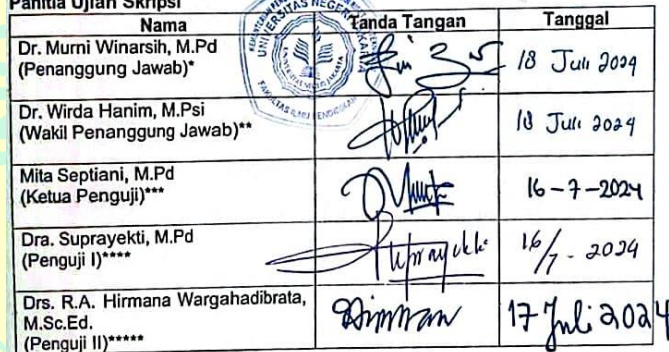 Panitia Ujian Skripsi
Nama Tanda Tangan Tanggal
Dr. Murni Winarsih, M.Pd
(Penanggung Jawab)*
18 Juli 2024
Dr. Wirda Hanim, M.Psi
(Wakil Penanggung Jawab)**
18 Juli 2024
Mita Septiani, M.Pd
(Ketua Penguji)***
16-7-2024
Dra. Suprayekti, M.Pd
(Penguji I)****
Suprayekti
16/7-2024
Drs. R.A. Hirmana Wargahadibrata,
M.Sc.Ed.
(Penguji II)*****
17 Juli 2024
UNIVERSITAS NEGERI JAKARTA
FAKULTAS ILMU PENDIDIKAN